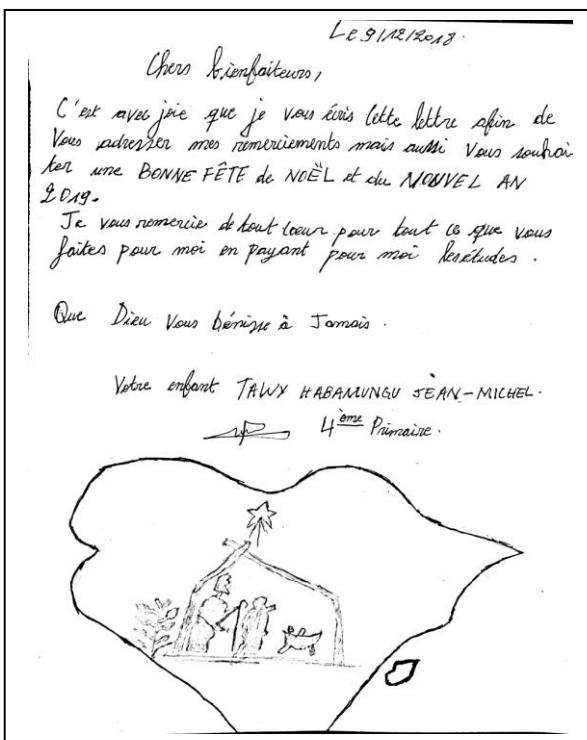 Le 9/12/2018.
Chers bienfaiteurs,
C'est avec joie que je vous écris cette lettre afin de
Vous adresser mes remerciements mais aussi Vous souhai
ter une BONNE FÊTE de NOËL et du NOUVEL AN
2019.
Je vous remercie de tout coeur pour tout ce que vous
faites pour moi en payant pour moi les études.
Que Dieu Vous bénisse à Jamais.
Votre enfant HABAMUNGU JEAN-MICHEL.
4ème Primaire.